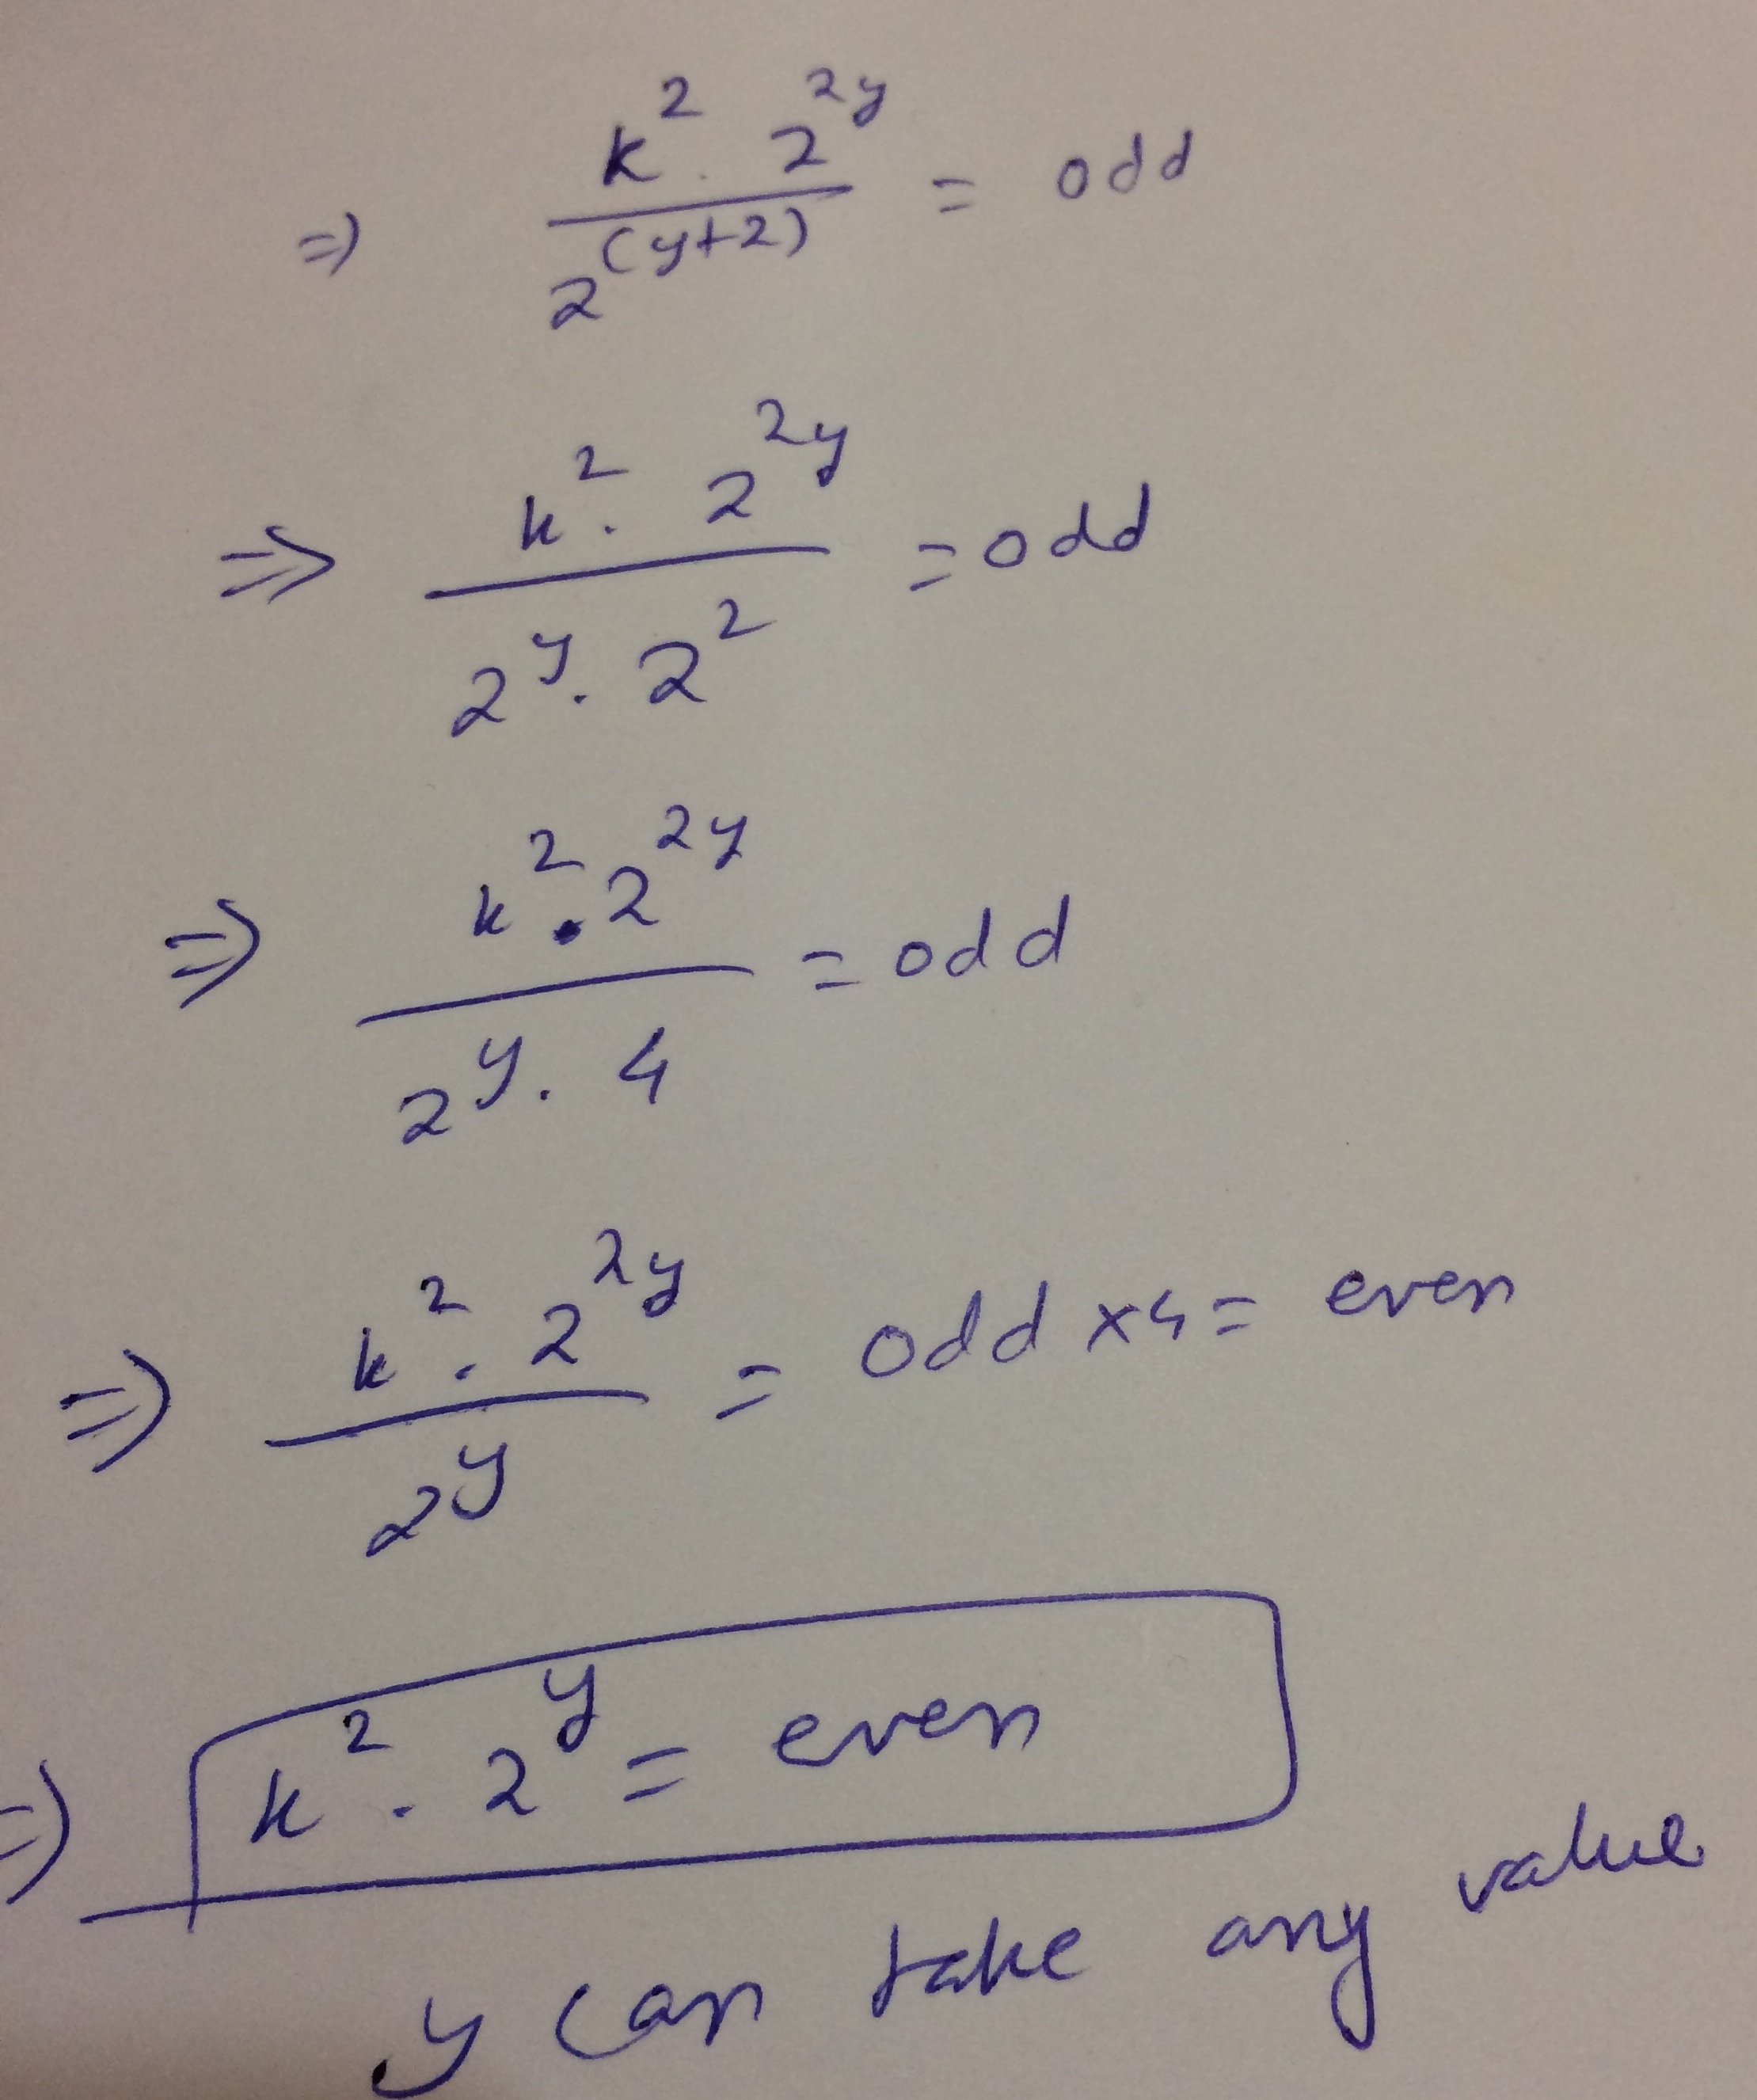 ⇒ k² · 2^(2y) / 2^((y+2)) = odd
⇒ k² · 2^(2y) / 2^y · 2² = odd
⇒ k² · 2^(2y) / 2^y · 4 = odd
⇒ k² · 2^(2y) / 2^y = odd ×4 = even
⇒ k² · 2^y = even
y can take any value